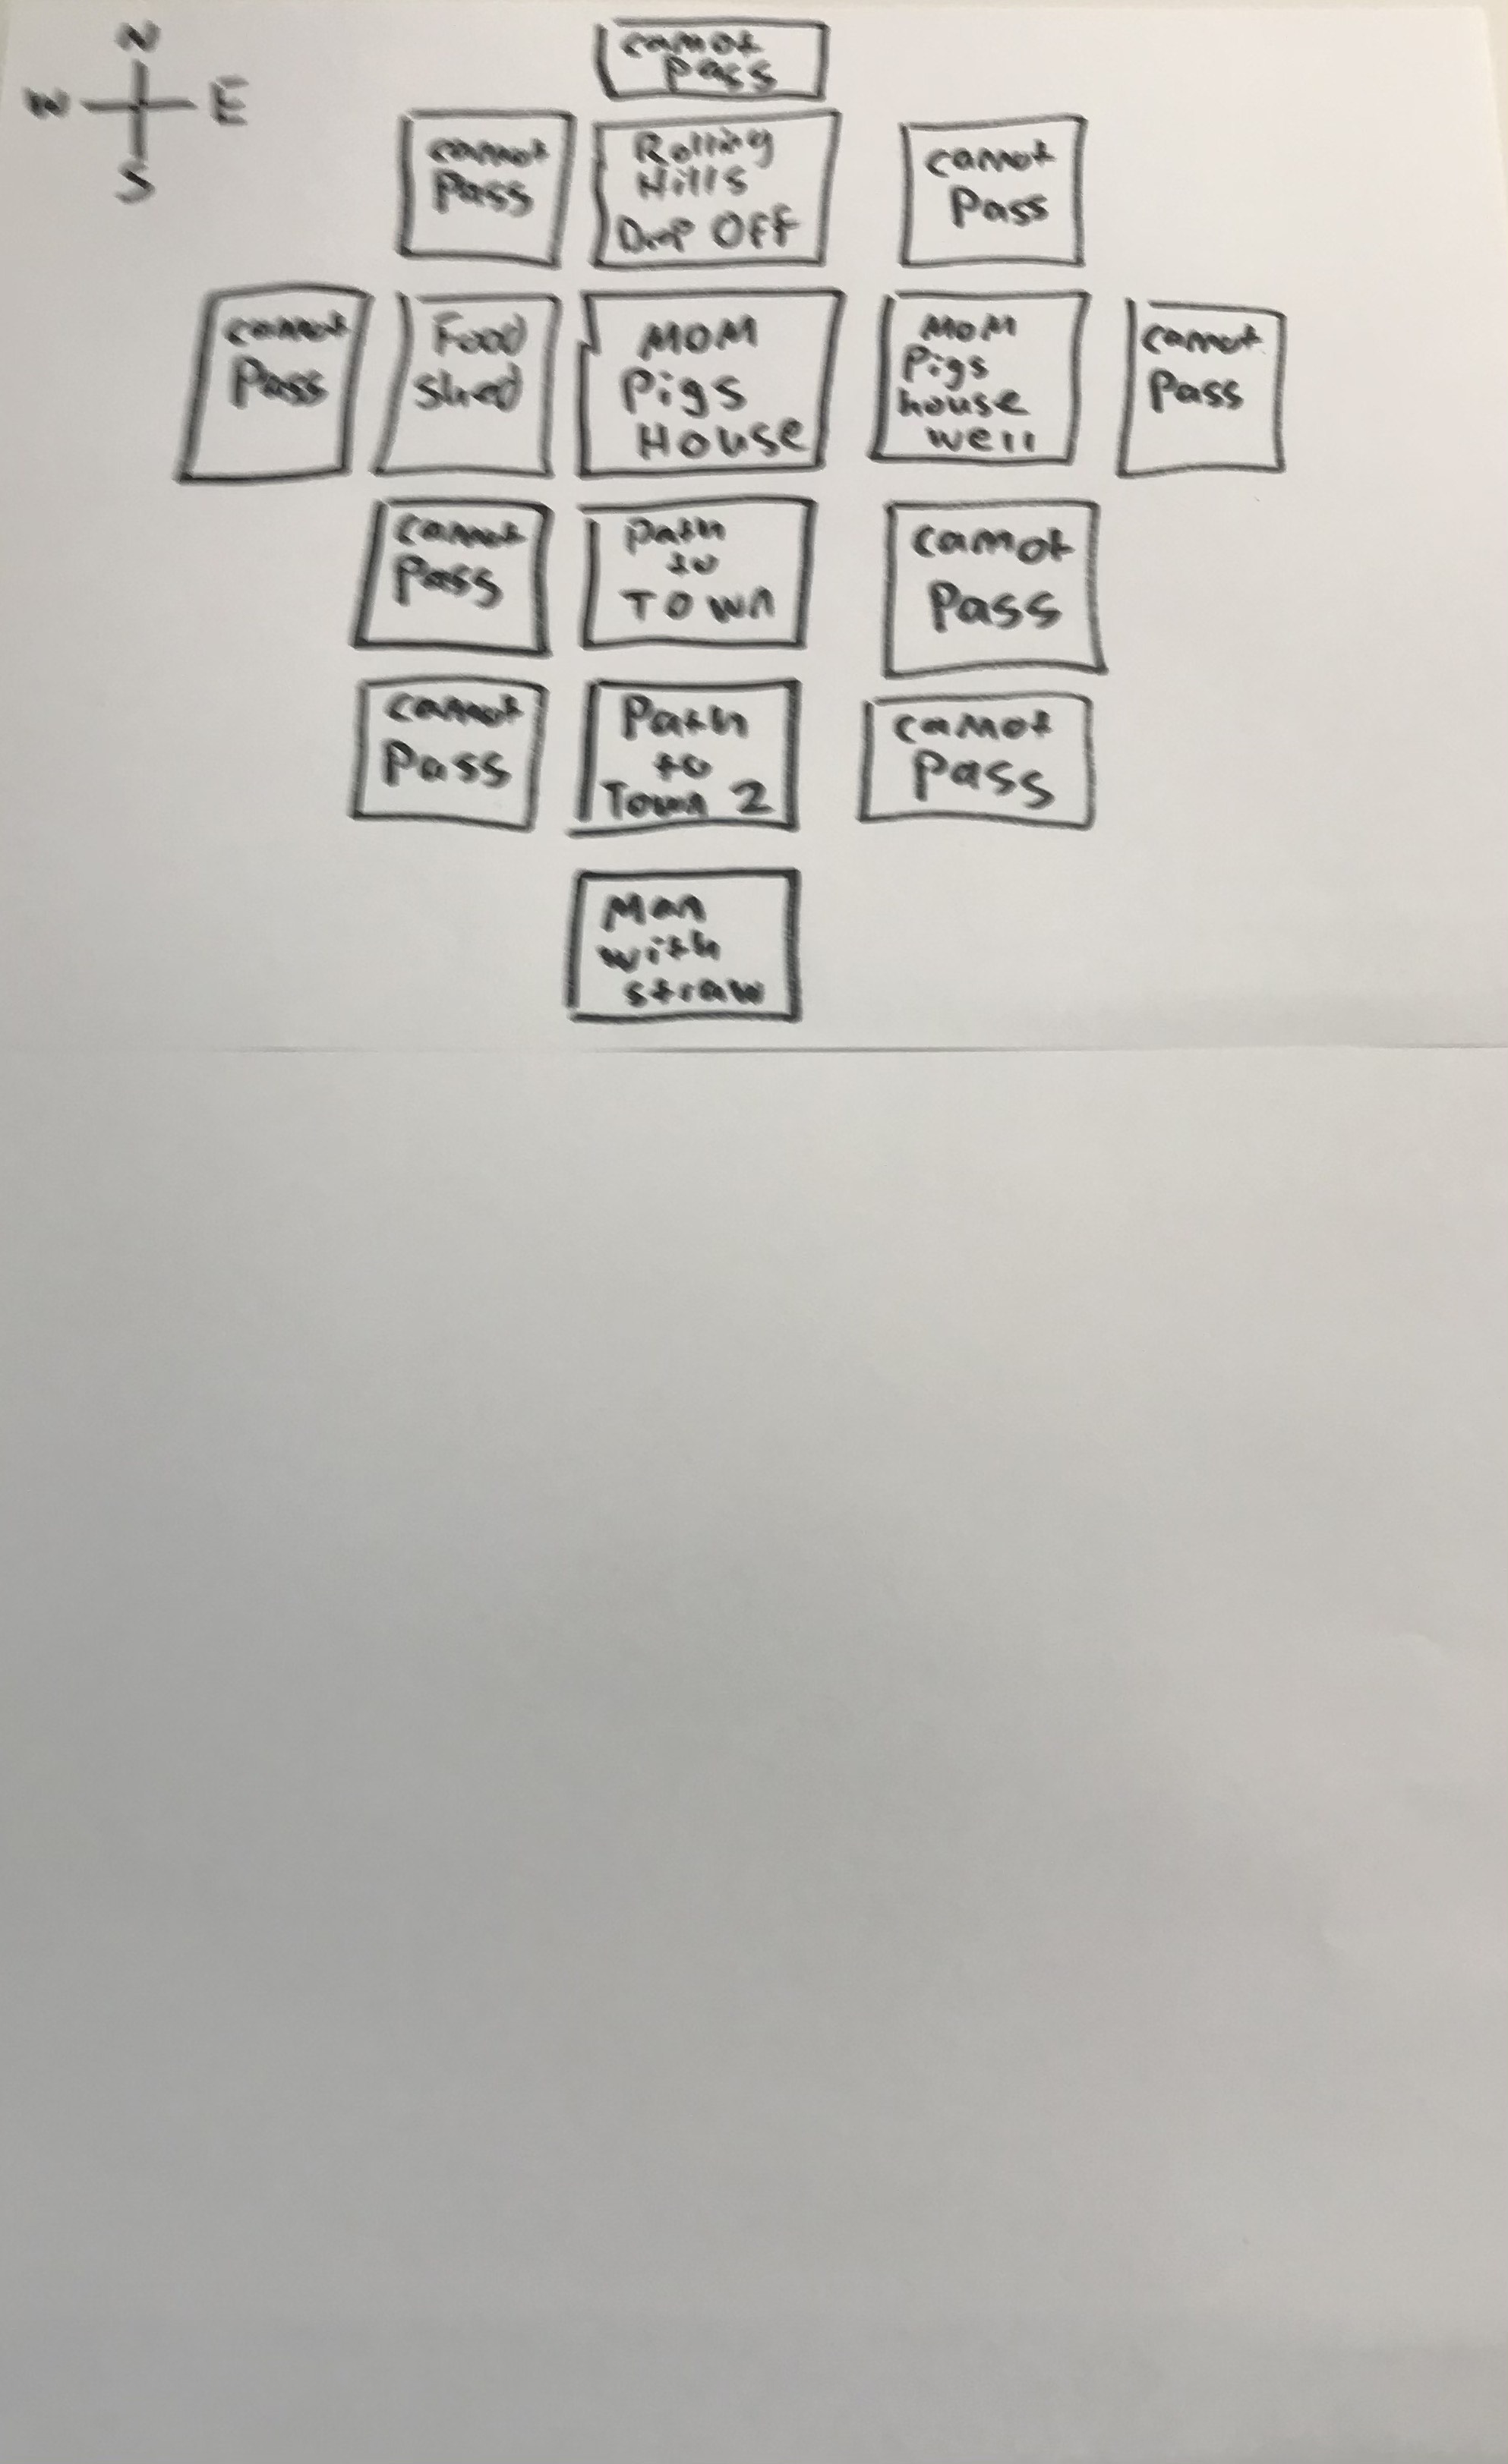 N
W E
S
cannot
pass
cannot
Pass
Rolling
Hills
Drop Off
cannot
Pass
cannot
Pass
Food
Shed
MOM
Pigs
House
MOM
Pigs
house
well
cannot
Pass
cannot
Pass
path
to
TOWN
cannot
Pass
cannot
Pass
Path
to
Town 2
cannot
Pass
Man
with
straw